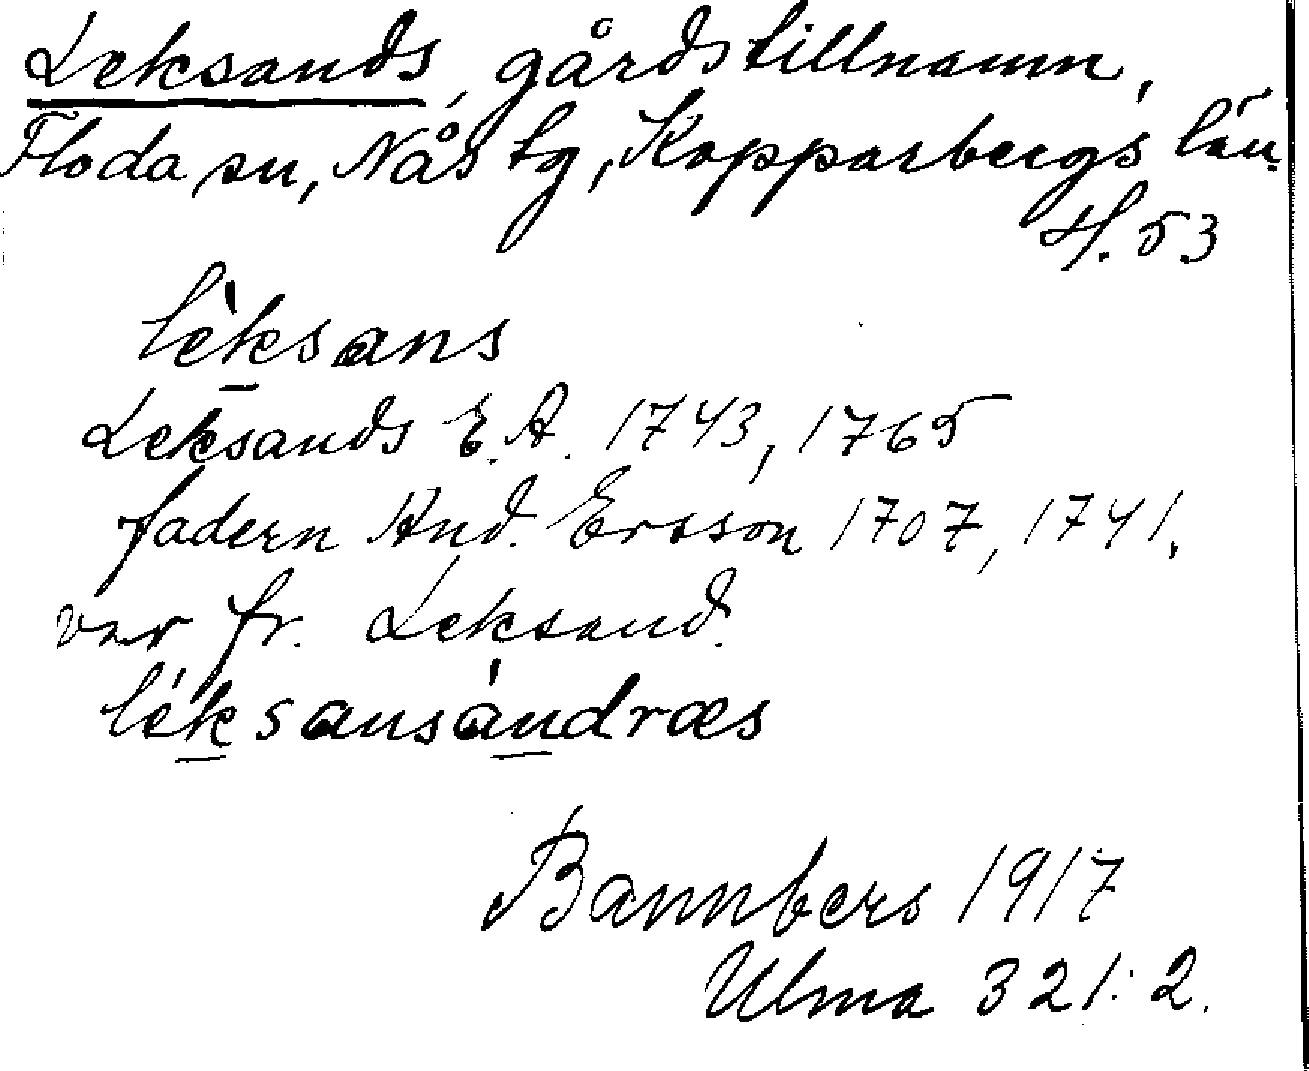 Leksands, gårdstillnamn,
Floda sn, Nås tg, Kopparbergs län.
H. 53
lèksans
Leksands E. A. 1743, 1765
fadern And. Ersson 1707, 1741,
var fr. Leksand.
léksansándræs
Bannbers 1917
Ulma 321:2.